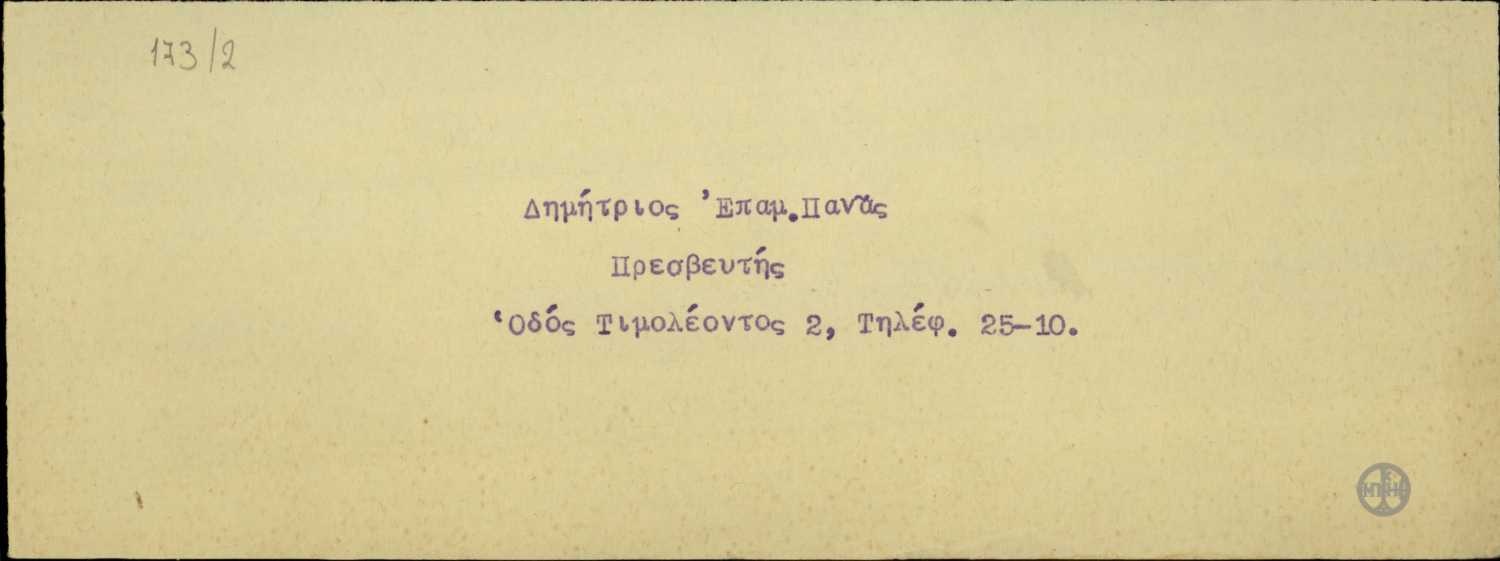 173/2
Δημήτριος Ἐπαμ.Πανᾶς
Πρεσβευτής
Ὁδός Τιμολέοντος 2, Τηλέφ. 25-10.